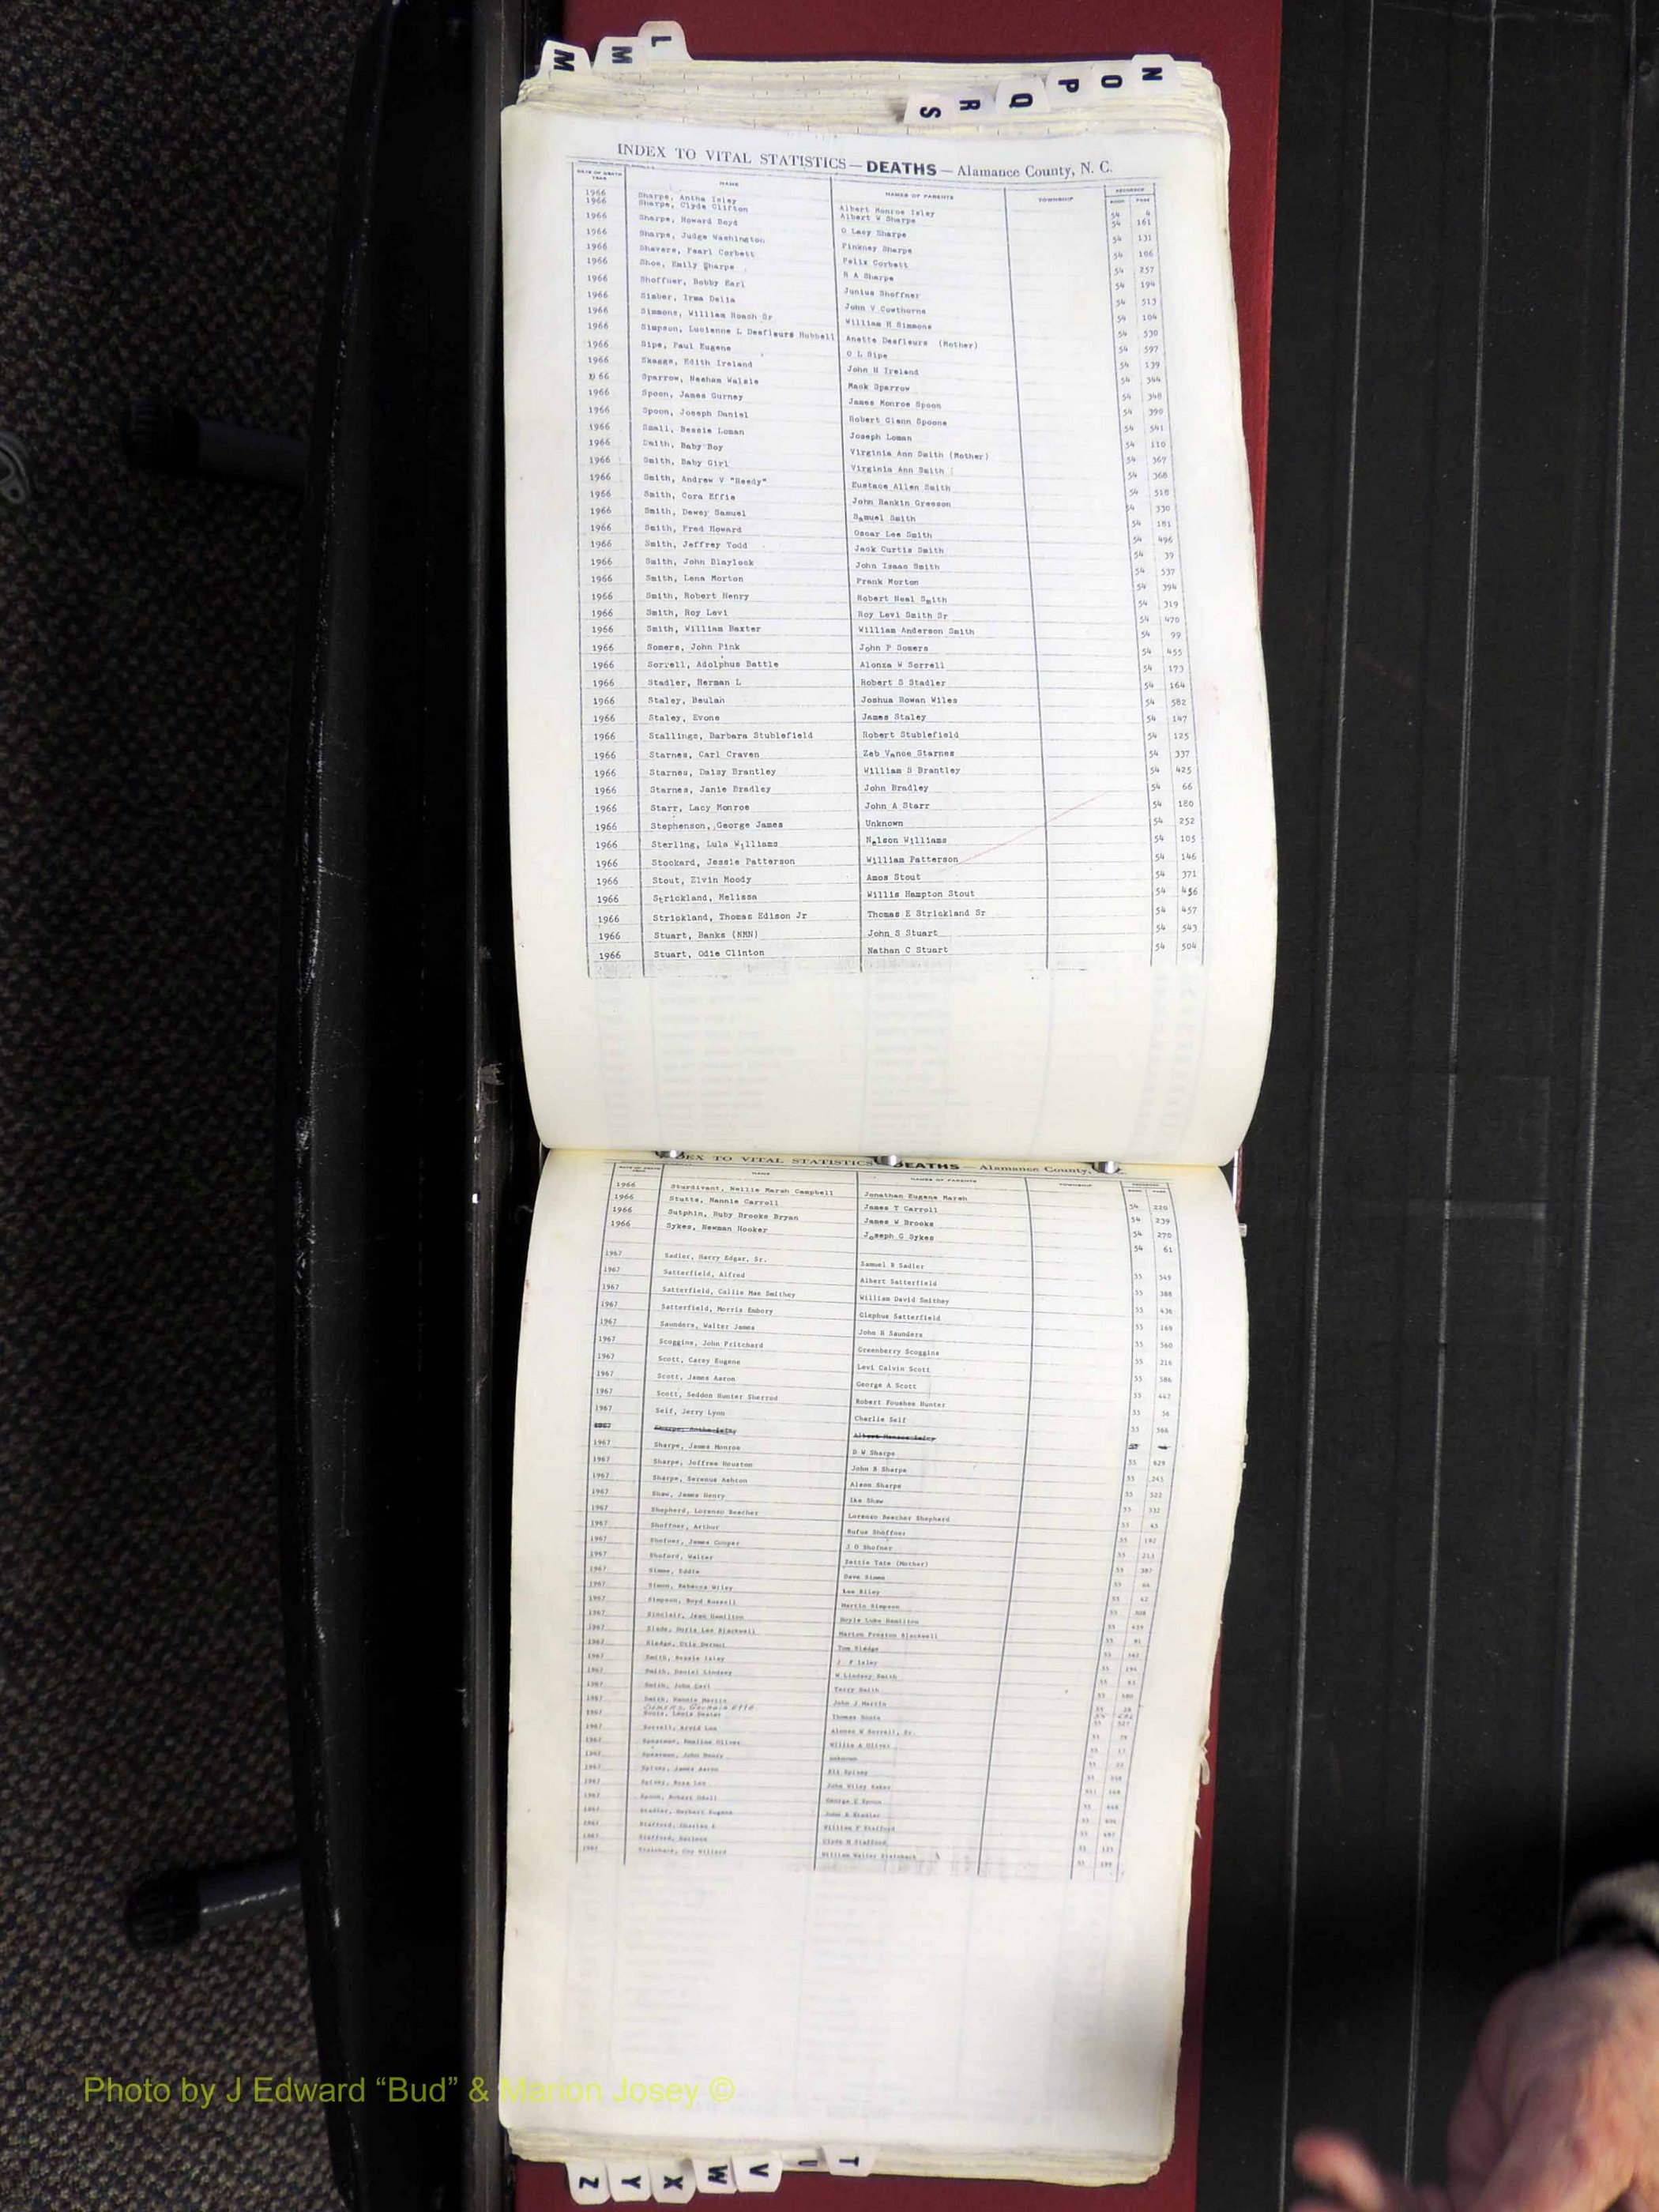 L
M
M
N
O
P
Q
R
S
INDEX TO VITAL STATISTICS — DEATHS — Alamance County, N. C.
DATE OF DEATH YEAR NAME NAMES OF PARENTS TOWNSHIP RECORDED BOOK PAGE
1966 Sharpe, Antha Isley Albert Monroe Isley 54 4
1966 Sharpe, Clyde Clifton Albert W Sharpe 54 161
1966 Sharpe, Howard Boyd O Lacy Sharpe 54 131
1966 Sharpe, Judge Washington Pinkney Sharpe 54 106
1966 Shavers, Pearl Corbett Felix Corbett 54 257
1966 Shoe, Emily Sharpe R A Sharpe 54 194
1966 Shoffner, Bobby Earl Junius Shoffner 54 513
1966 Simber, Irma Delia John V Cowthorne 54 104
1966 Simmons, William Roach Sr William H Simmons 54 530
1966 Simpson, Lucienne L Desfleurs Hubbell Anette Desfleurs (Mother) 54 597
1966 Sipe, Paul Eugene O L Sipe 54 139
1966 Skaggs, Edith Ireland John H Ireland 54 344
1966 Sparrow, Neeham Walsie Mack Sparrow 54 348
1966 Spoon, James Gurney James Monroe Spoon 54 390
1966 Spoon, Joseph Daniel Robert Glenn Spoone 54 541
1966 Small, Bessie Loman Joseph Loman 54 110
1966 Smith, Baby Boy Virginia Ann Smith (Mother) 54 367
1966 Smith, Baby Girl Virginia Ann Smith ( 54 368
1966 Smith, Andrew V "Reedy" Eustace Allen Smith 54 518
1966 Smith, Cora Effie John Rankin Greeson 54 330
1966 Smith, Dewey Samuel Samuel Smith 54 181
1966 Smith, Fred Howard Oscar Lee Smith 54 496
1966 Smith, Jeffrey Todd Jack Curtis Smith 54 39
1966 Smith, John Blaylock John Isaac Smith 54 537
1966 Smith, Lena Morton Frank Morton 54 394
1966 Smith, Robert Henry Robert Neal Smith 54 319
1966 Smith, Roy Levi Roy Levi Smith Sr 54 470
1966 Smith, William Baxter William Anderson Smith 54 99
1966 Somers, John Pink John P Somers 54 455
1966 Sorrell, Adolphus Battle Alonza W Sorrell 54 173
1966 Stadler, Herman L Robert S Stadler 54 164
1966 Staley, Beulah Joshua Rowan Wiles 54 582
1966 Staley, Evone James Staley 54 147
1966 Stallings, Barbara Stublefield Robert Stublefield 54 125
1966 Starnes, Carl Craven Zeb Vance Starnes 54 337
1966 Starnes, Daisy Brantley William S Brantley 54 425
1966 Starnes, Janie Bradley John Bradley 54 66
1966 Starr, Lacy Monroe John A Starr 54 180
1966 Stephenson, George James Unknown 54 252
1966 Sterling, Lula Williams Nelson Williams 54 105
1966 Stockard, Jessie Patterson William Patterson 54 146
1966 Stout, Elvin Moody Amos Stout 54 371
1966 Strickland, Melissa Willis Hampton Stout 54 456
1966 Strickland, Thomas Edison Jr Thomas E Strickland Sr 54 457
1966 Stuart, Banks (NMN) John S Stuart 54 543
1966 Stuart, Odie Clinton Nathan C Stuart 54 504
INDEX TO VITAL STATISTICS DEATHS — Alamance County,
DATE OF DEATH NAME NAMES OF PARENTS TOWNSHIP RECORDED
1966 Sturdivant, Nellie Marsh Campbell Jonathan Eugene Marsh 54 220
1966 Stutts, Nannie Carroll James T Carroll 54 239
1966 Sutphin, Ruby Brooks Bryan James W Brooks 54 270
1966 Sykes, Newman Hooker Joseph G Sykes 54 61
1967 Sadler, Harry Edgar, Sr. Samuel B Sadler 55 549
1967 Satterfield, Alfred Albert Satterfield 55 388
1967 Satterfield, Callie Mae Smithey William David Smithey 55 436
1967 Satterfield, Morris Embory Clephus Satterfield 55 169
1967 Saunders, Walter James John H Saunders 55 360
1967 Scoggins, John Pritchard Greenberry Scoggins 55 216
1967 Scott, Carey Eugene Levi Calvin Scott 55 586
1967 Scott, James Aaron George A Scott 55 447
1967 Scott, Seddon Hunter Sherrod Robert Foushee Hunter 55 56
1967 Self, Jerry Lynn Charlie Self 55 366
1967 Sharpe, Antha Isley Albert Monroe Isley
1967 Sharpe, James Monroe D W Sharpe 55 429
1967 Sharpe, Joffree Houston John B Sharpe 55 245
1967 Sharpe, Serenus Ashton Alson Sharpe 55 522
1967 Shaw, James Henry Ike Shaw 55 332
1967 Shepherd, Lorenzo Beecher Lorenzo Beecher Shepherd 55 45
1967 Shoffner, Arthur Rufus Shoffner 55 192
1967 Shofner, James Cooper J D Shofner 55 211
1967 Shuford, Walter Zettie Tate (Mother) 55 387
1967 Simms, Eddie Dave Simms 55
1967 Simon, Rebecca Wiley Lee Riley 55 42
1967 Simpson, Boyd Russell Martin Simpson 55
1967 Sinclair, Jean Hamilton Hoyle Luke Hamilton 55
1967 Slade, Doris Lee Blackwell Marion Preston Blackwell 55
1967 Sledge, Otis Tom Sledge 55
1967 Smith, Bessie Isley J F Isley 55
1967 Smith, Daniel Lindsey W Lindsey Smith 55
1967 Smith, John Carl Terry Smith 55
1967 Smith, Nannie Martin John J Martin 55
Georgia
1967 Soots, Lewis Thomas Soots 55
1967 Sorrell, Arvid Lee Alonzo W Sorrell, Sr. 55
1967 Emeline Oliver Willis A Oliver 55
1967 Spearman, John Henry unknown 55
1967 Spivey, James Aaron Eli Spivey 55
1967 Spivey, Rosa Lee John Wiley Baker
1967 Spoon, Robert Odell George E Spoon 55
1967 Stadler, Herbert Eugene John Stadler 55
1967 Stafford, Charles William F Stafford 55
1967 Stafford, Clyde M Stafford 55
1967 William Walter 55
Photo by J Edward “Bud” & Marion Josey ©
Z
Y
X
W
V
U
T